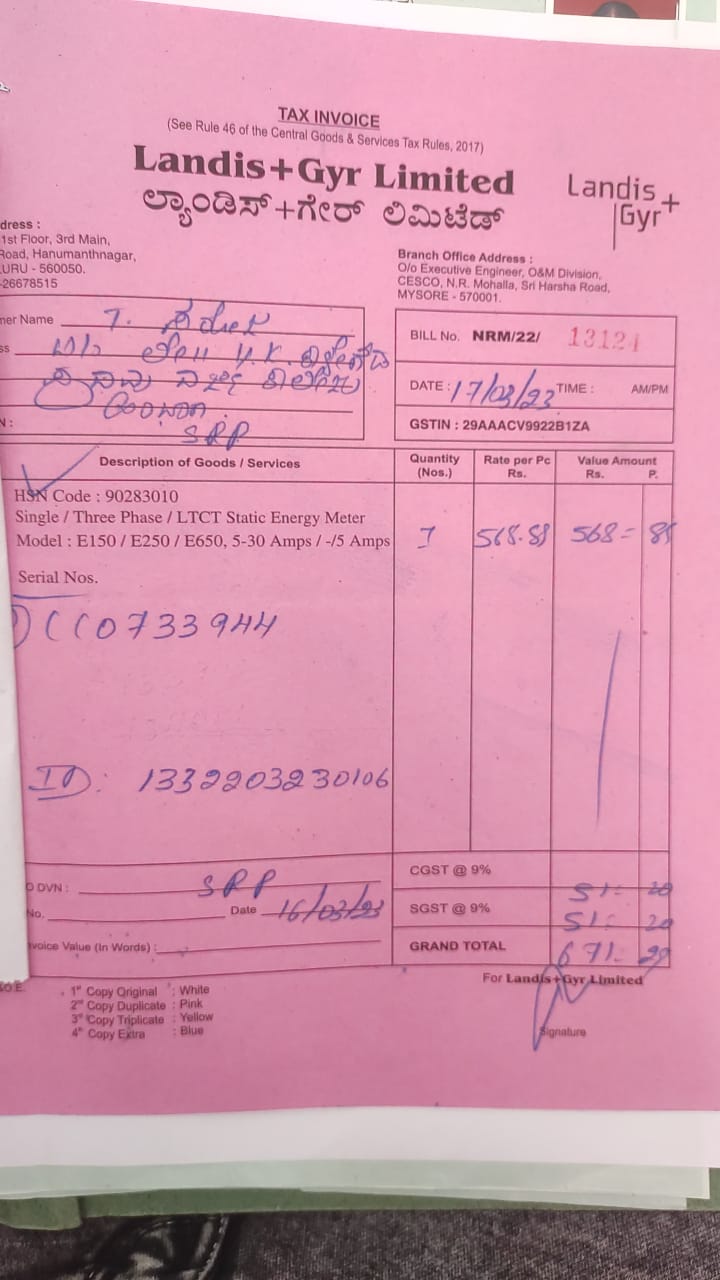 TAX INVOICE
(See Rule 46 of the Central Goods & Services Tax Rules, 2017)
Landis+Gyr Limited
ಲ್ಯಾಂಡಿಸ್+ಗೇರ್ ಲಿಮಿಟೆಡ್
Landis+
Gyr
dress :
1st Floor, 3rd Main,
Road, Hanumanthnagar,
URU - 560050.
26678515
Branch Office Address :
O/o Executive Engineer, O&M Division,
CESCO, N.R. Mohalla, Sri Harsha Road,
MYSORE - 570001.
mer Name
ss
SRP
N :
BILL No. NRM/22/ 13124
DATE : 17/03/23 TIME : AM/PM
GSTIN : 29AAACV9922B1ZA
Description of Goods / Services
Quantity (Nos.)
Rate per Pc Rs.
Value Amount Rs. P.
HSN Code : 90283010
Single / Three Phase / LTCT Static Energy Meter
Model : E150 / E250 / E650, 5-30 Amps / -/5 Amps 1 568.85 568= 85
Serial Nos.
CC0733944
ID: 1332203230106
O DVN : SRP
No. Date 16/03/23
nvoice Value (In Words) :
CGST @ 9% 51= 20
SGST @ 9% 51= 20
GRAND TOTAL 671=
For Landis+Gyr Limited
Signature
1st Copy Original : White
2nd Copy Duplicate : Pink
3rd Copy Triplicate : Yellow
4th Copy Extra : Blue